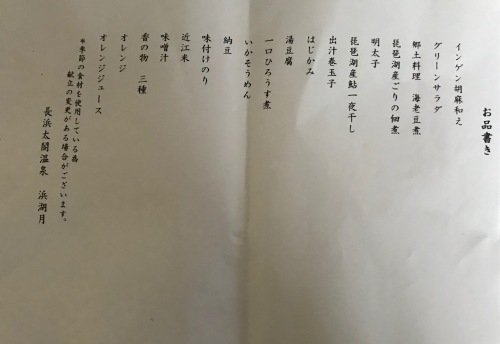 お品書き
インゲン胡麻和え
グリーンサラダ
郷土料理　海老豆煮
琵琶湖産ごりの佃煮
明太子
琵琶湖産鮎一夜干し
出汁巻玉子
はじかみ
湯豆腐
一口ひろうす煮
いかそうめん
納豆
味付けのり
近江米
味噌汁
香の物　三種
オレンジ
オレンジジュース
＊季節の食材を使用している為
献立の変更がある場合がございます。
長浜太閤温泉　浜湖月